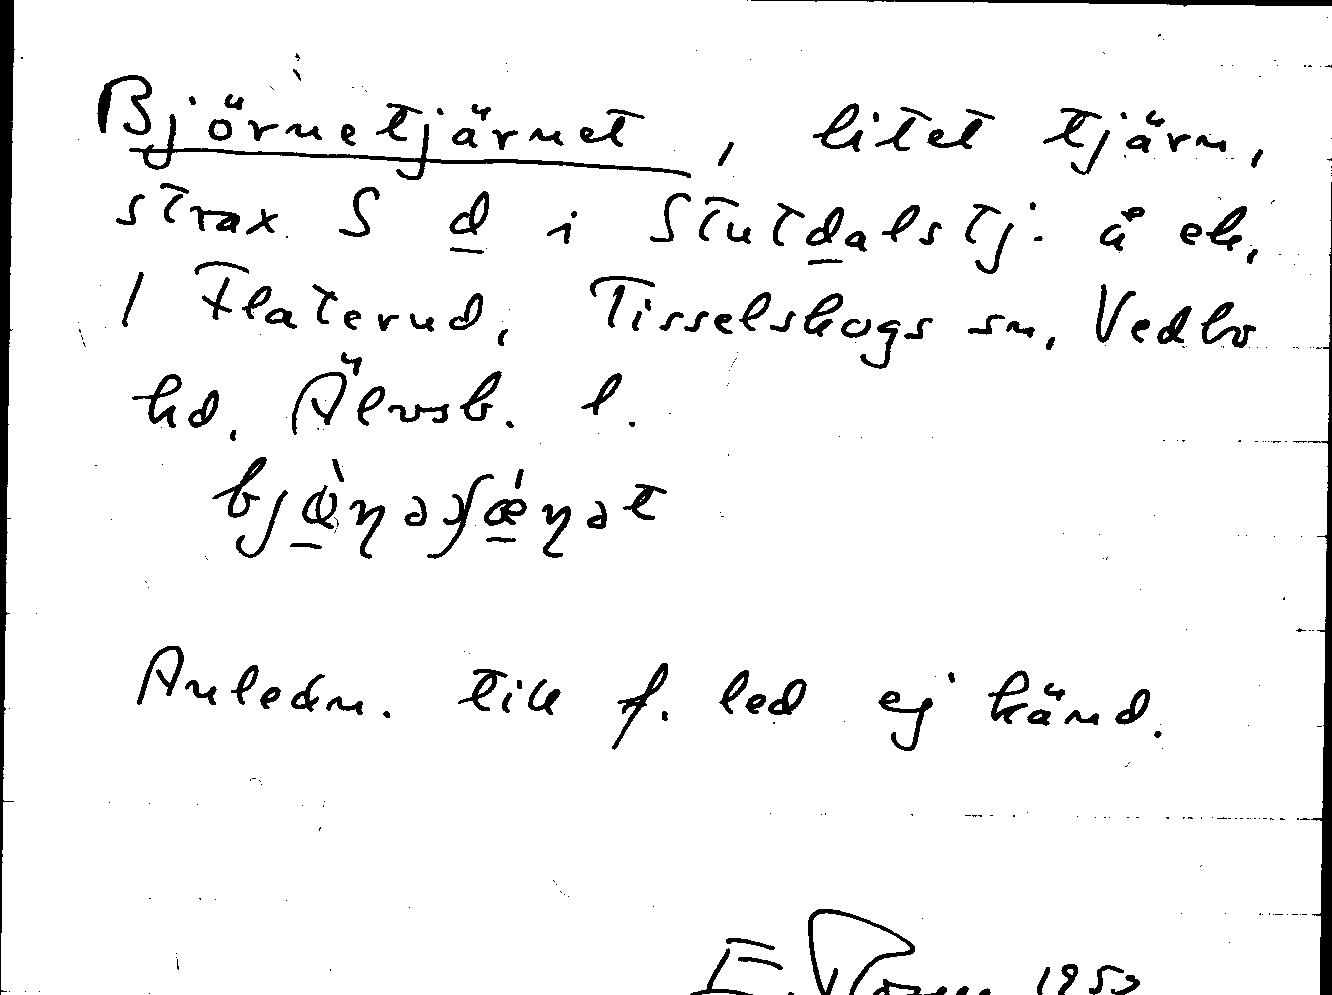 Björnetjärnet, litet tjärn,
strax S d i Stutdalstj. å ek.
1 Flaterud, Tisselskogs sn, Vedbo
hd, Älvsb. l.
Anledn. till f. led ej känd.
E. 195